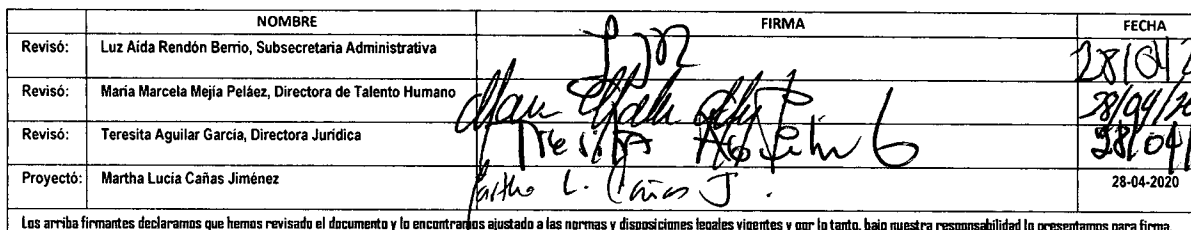 NOMBRE FIRMA FECHA
Revisó: Luz Aída Rendón Berrio, Subsecretaria Administrativa 28/04/2
Revisó: María Marcela Mejía Peláez, Directora de Talento Humano 28/04/20
Revisó: Teresita Aguilar García, Directora Jurídica Teresita Aguilar G 28/04/
Proyectó: Martha Lucía Cañas Jiménez Martha L. Cañas J. 28-04-2020
Los arriba firmantes declaramos que hemos revisado el documento y lo encontramos ajustado a las normas y disposiciones legales vigentes y por lo tanto, bajo nuestra responsabilidad lo presentamos para firma.